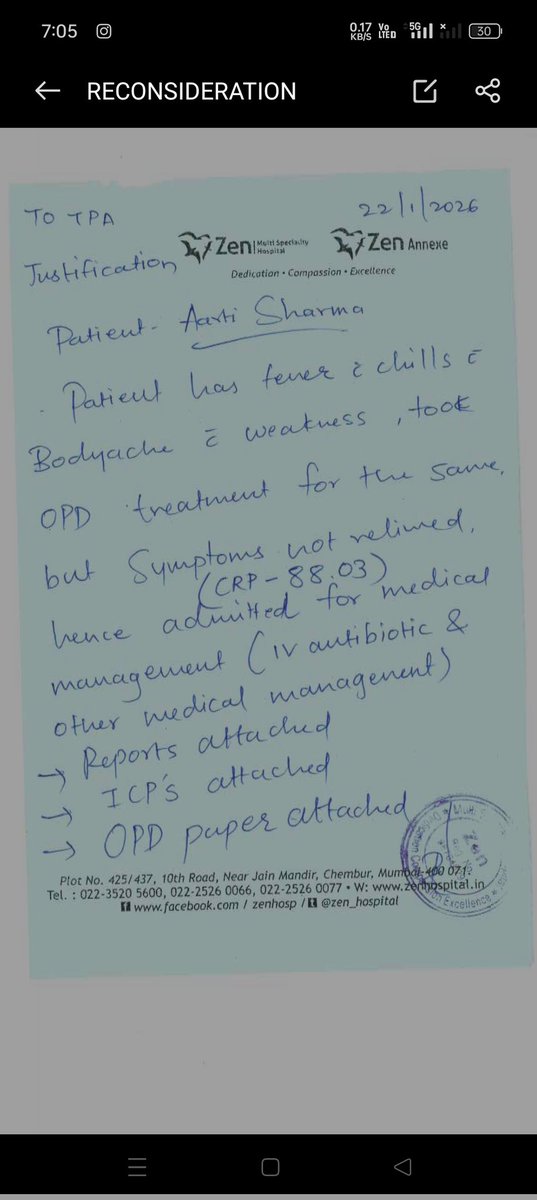 7:05
0.17 KB/S
Vo LTED
5G
30
RECONSIDERATION
TO TPA
22/1/2026
Zen Multi Speciality Hospital
Zen Annexe
Dedication • Compassion • Excellence
Justification
Patient - Aarti Sharma
. Patient has fever c̄ chills c̄
Bodyache c̄ weakness, took
OPD treatment for the same,
but Symptoms not relived,
(CRP - 88.03)
hence admitted for medical
management (IV antibiotic &
other medical management)
→ Reports attached
→ ICP's attached
→ OPD paper attached
Plot No. 425/437, 10th Road, Near Jain Mandir, Chembur, Mumbai-400 071.
Tel. : 022-3520 5600, 022-2526 0066, 022-2526 0077 • W: www.zenhospital.in
www.facebook.com / zenhosp / @zen_hospital
Excellence